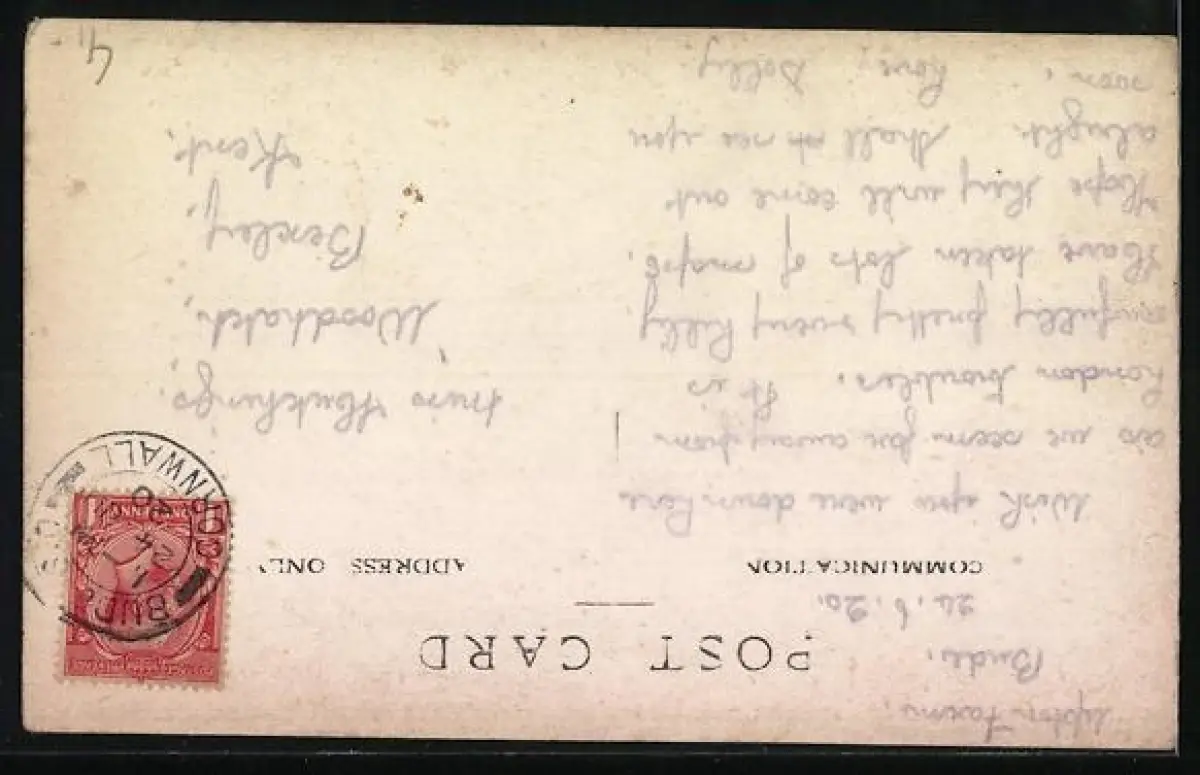 Upton Farm.
Bude.
24.6.20.
POST CARD
COMMUNICATION
ADDRESS ONLY
Wish you were down here
as we seem far away from
London troubles. It is
awfully pretty & very hilly
Have taken lots of snaps.
Hope they will come out
alright. Shall see you
soon,
Love, Dolly.
Miss Huckings.
Woodlatch,
Bexley,
Kent.
BUDE
CORNWALL
24
20
4